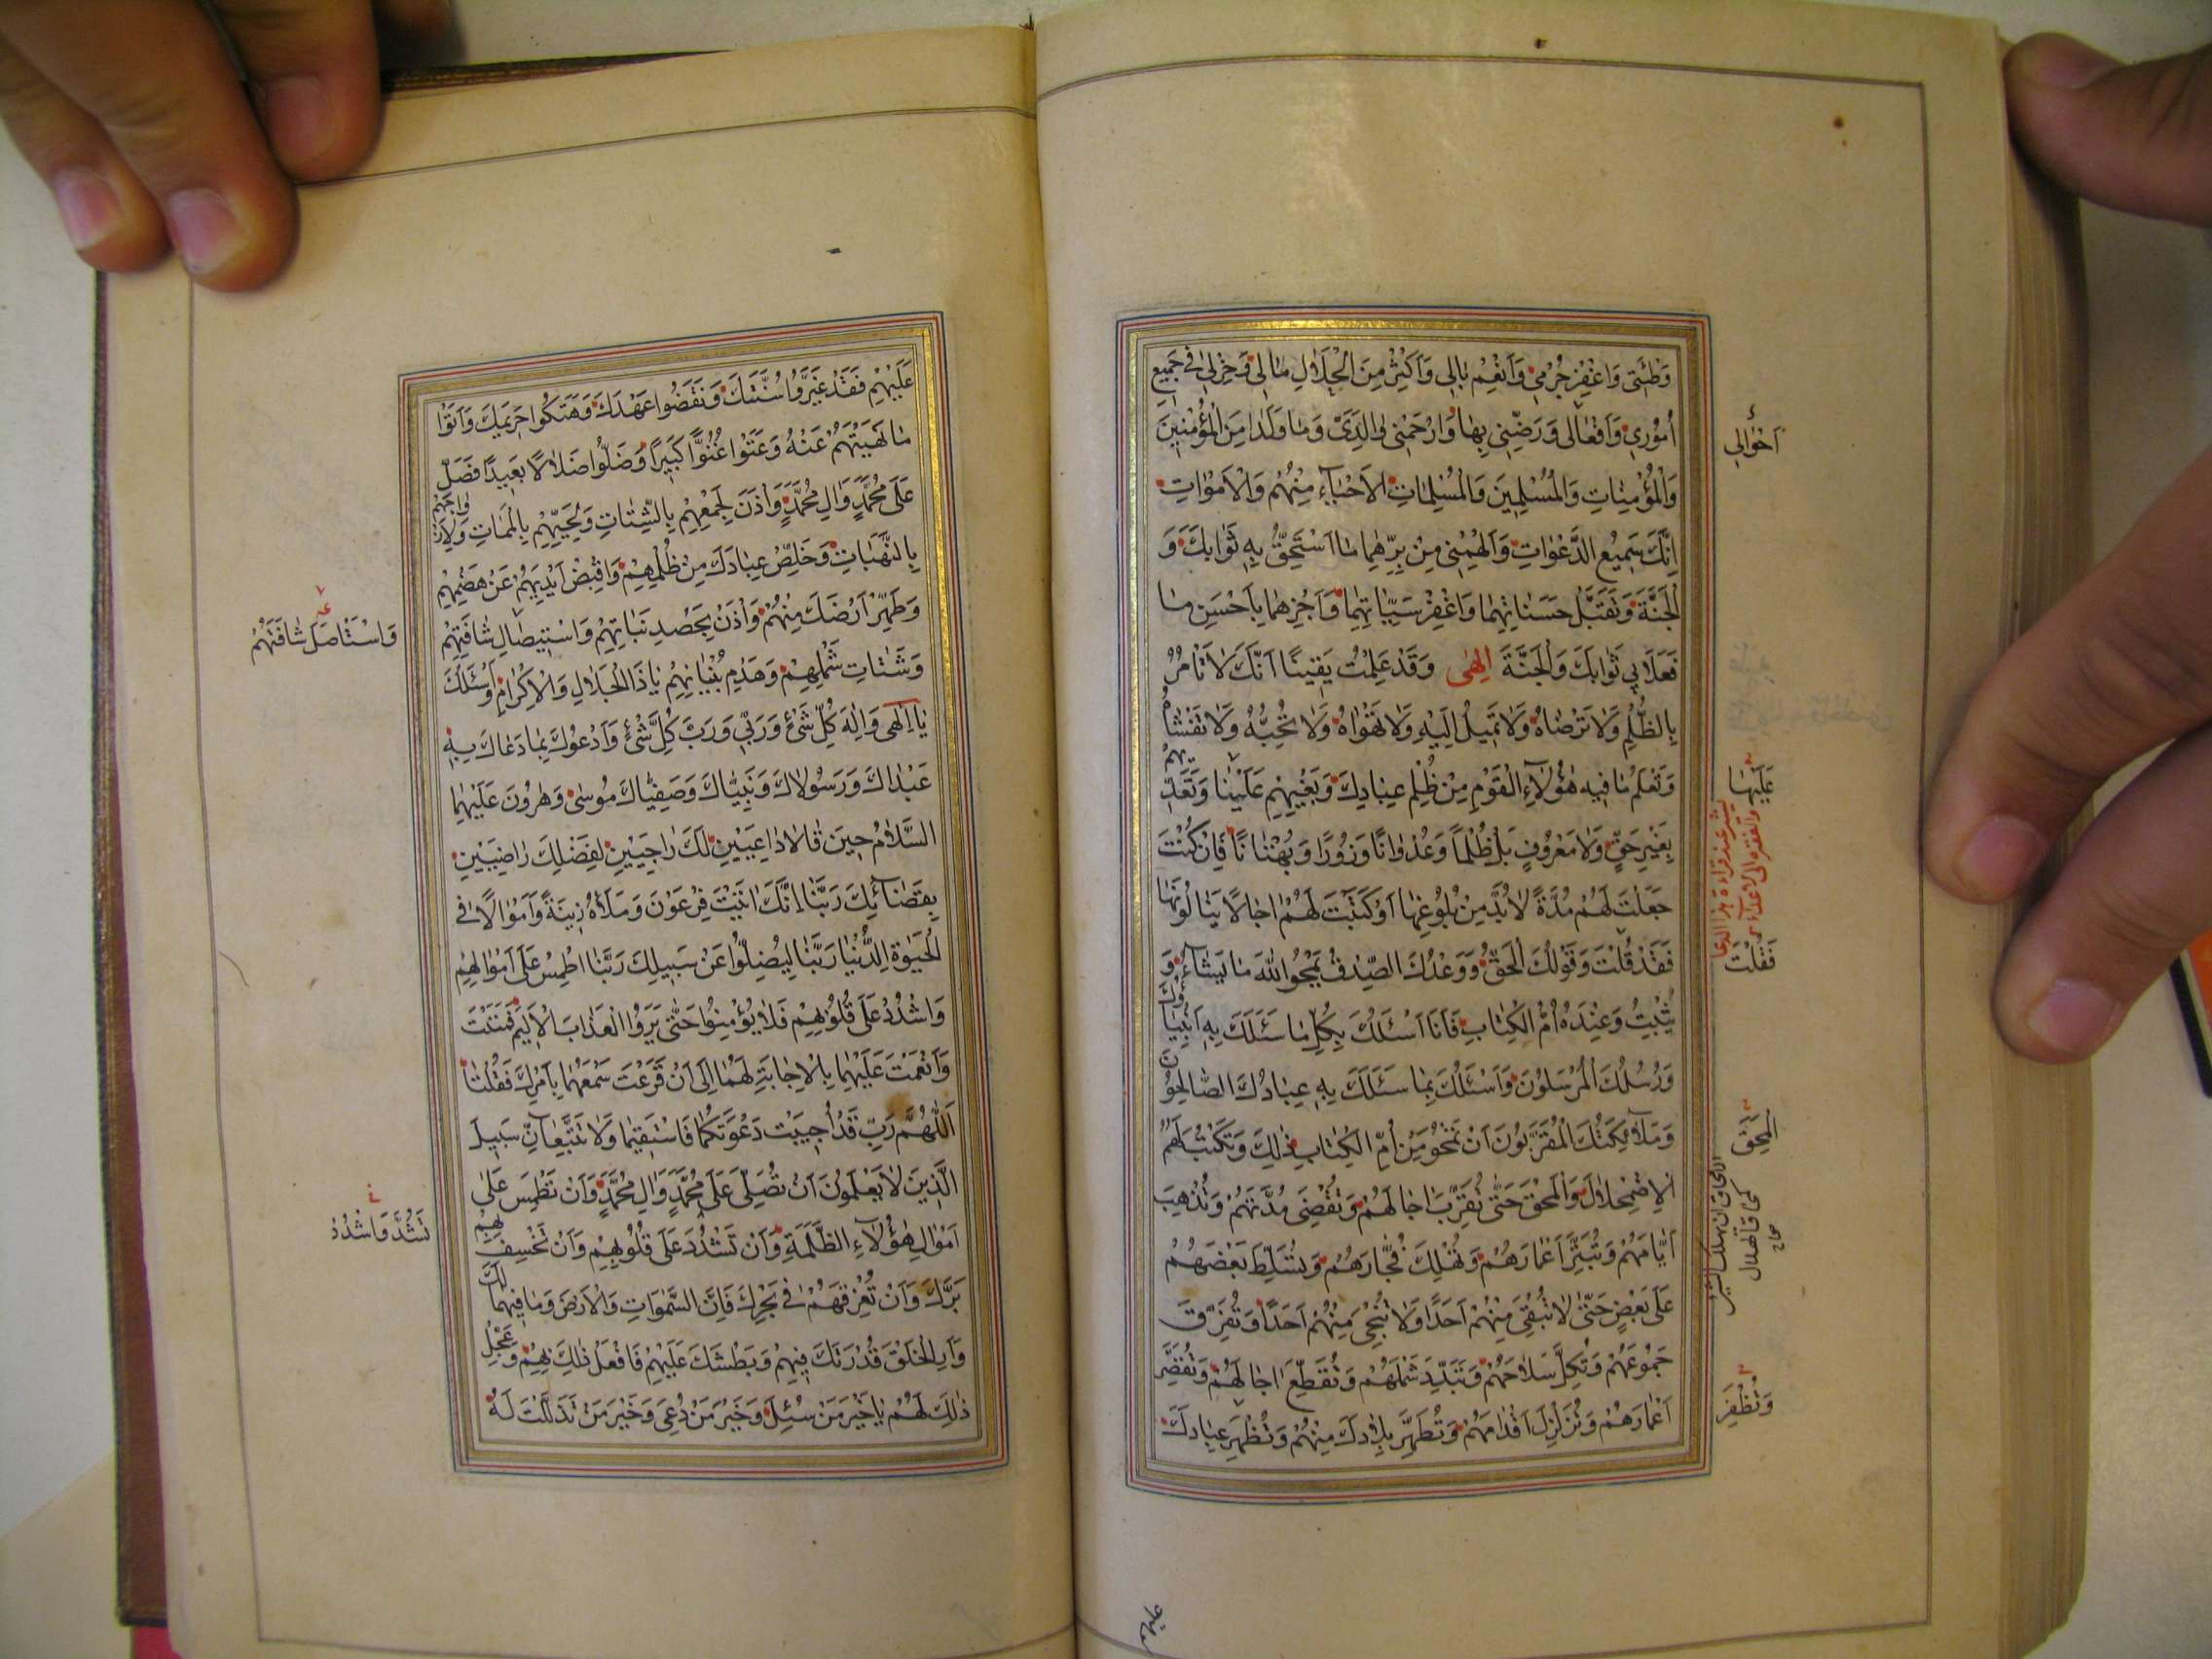 وَطْئَتِى وَاغْفِرْ جُرْمِى وَاَنْعِمْ بٰالِى وَاَكْثِرْ مِنَ الْحَلٰالِ مٰالِى وَخِرْلِى فِى جَمِيعِ
اُمُوُرِى وَاَفْعٰالِى وَرَضِّنِى بِهٰا وَارْحَمْنِى وَالِدَىَّ وَمٰا وَلَدٰا مِنَ الْمُؤْمِنِينَ
اَحْوٰالِى
وَالْمُؤْمِنٰاتِ وَالْمُسْلِمِينَ وَالْمُسْلِمٰاتِ الْاَحْيٰآءِ مِنْهُمْ وَالْاَمْوٰاتِ
اِنَّكَ سَمِيعُ الدَّعَوٰاتِ وَاَلْهِمْنِى مِنْ بِرِّهِمٰا مٰا اَسْتَحِقُّ بِهِ ثَوٰابَكَ وَ
الْجَنَّةَ وَتَقَبَّلْ حَسَنٰاتِهِمٰا وَاغْفِرْ سَيِّئٰاتِهِمٰا وَاجْزِهِمٰا بِاَحْسَنِ مٰا
فَعَلٰا بِى ثَوٰابَكَ وَالْجَنَّةَ اِلٰهِى وَقَدْ عَلِمْتُ يَقِينًا اَنَّكَ لٰا تَأْمُرُ
بِالظُّلْمِ وَلٰا تَرْضٰاهُ وَلٰا تَمِيلُ اِلَيْهِ وَلٰا تَهْوٰاهُ وَلٰا تُحِبُّهُ وَلٰا تَغْشٰاهُ
وَتَعْلَمُ مٰا فِيهِ هٰؤُلٰآءِ الْقَوْمِ مِنْ ظُلْمِ عِبٰادِكَ وَبَغْيِهِمْ عَلَيْنٰا وَتَعَدِّيهِمْ
عَلَيْهٰا
بِغَيْرِ حَقٍّ وَلٰا مَعْرُوفٍ بَلْ ظُلْمًا وَعُدْوٰانًا وَزُورًا وَبُهْتٰانًا فَاِنْ كُنْتَ
جَعَلْتَ لَهُمْ مُدَّةً لٰا بُدَّ مِنْ بُلُوغِهٰا اَوْ كَتَبْتَ لَهُمْ اٰجٰالًا يَنٰالُونَهٰا
فَقَدْ قُلْتَ وَقَوْلُكَ الْحَقُّ وَوَعْدُكَ الصِّدْقُ يَمْحُوا اللّٰهُ مٰا يَشٰآءُ وَ
فَقُلْتَ
يُثْبِتُ وَعِنْدَهُ اُمُّ الْكِتٰابِ فَاَنَا اَسْئَلُكَ بِكُلِّ مٰا سَئَلَكَ بِهِ اَنْبِيٰاؤُكَ
وَرُسُلُكَ الْمُرْسَلُونَ وَاَسْئَلُكَ بِمٰا سَئَلَكَ بِهِ عِبٰادُكَ الصّٰالِحُونَ
وَمَلٰآئِكَتُكَ الْمُقَرَّبُونَ اَنْ تَمْحُوَ مِنْ اُمِّ الْكِتٰابِ ذٰلِكَ وَتَكْتُبَ لَهُمُ
الْاِضْمِحْلٰالَ وَالْمَحْقَ حَتّٰى تُقَرِّبَ اٰجٰالَهُمْ وَتُقْضَى مُدَّتَهُمْ وَتُذْهِبَ
اَيّٰامَهُمْ وَتُبَتِّرَ اَعْمٰارَهُمْ وَتُهْلِكَ فُجّٰارَهُمْ وَتُسَلِّطَ بَعْضَهُمْ
عَلٰى بَعْضٍ حَتّٰى لٰا تُبْقِىَ مِنْهُمْ اَحَدًا وَلٰا تُنْجِىَ مِنْهُمْ اَحَدًا وَتُفَرِّقَ
جُمُوعَهُمْ وَتُكِلَّ سَلٰاحَهُمْ وَتُبَدِّدَ شَمْلَهُمْ وَتُقَطِّعَ اٰجٰالَهُمْ وَتُقَصِّرَ
اَعْمٰارَهُمْ وَتُزَلْزِلَ اَقْدٰامَهُمْ وَتُطَهِّرَ بِلٰادَكَ مِنْهُمْ وَتُظْهِرَ عِبٰادَكَ
وَتُظْفِرَ
عَلَيْهِمْ فَقَدْ غَيَّرُوا سُنَّتَكَ وَنَقَضُوا عَهْدَكَ وَهَتَكُوا حَرِيمَكَ وَاَتَوْا
مٰا نَهَيْتَهُمْ عَنْهُ وَعَتَوْا عُتُوًّا كَبِيرًا وَضَلُّوا ضَلٰالًا بَعِيدًا فَصَلِّ
عَلٰى مُحَمَّدٍ وَاٰلِ مُحَمَّدٍ وَاْذَنْ لِجَمْعِهِمْ بِالشَّتٰاتِ وَلِحَيِّهِمْ بِالْمَمٰاتِ وَلِاَزْوٰاجِهِمْ
بِالنَّهَبٰاتِ وَخَلِّصْ عِبٰادَكَ مِنْ ظُلْمِهِمْ وَاقْبِضْ اَيْدِيَهُمْ عَنْ هَضْمِهِمْ
وَطَهِّرْ اَرْضَكَ مِنْهُمْ وَاْذَنْ بِحَصْدِ نَبٰاتِهِمْ وَاسْتِيصٰالِ شٰافَتِهِمْ
وَاسْتَأْصِلْ شٰافَتَهُمْ
وَشَتٰاتِ شَمْلِهِمْ وَهَدْمِ بُنْيٰانِهِمْ يٰا ذَا الْجَلٰالِ وَالْاِكْرٰامِ وَاَسْئَلُكَ
يٰا اِلٰهِى وَاِلٰهَ كُلِّ شَىْءٍ وَرَبِّى وَرَبَّ كُلِّ شَىْءٍ وَاَدْعُوكَ بِمٰا دَعٰاكَ بِهِ
عَبْدٰاكَ وَرَسُولٰاكَ وَنَبِيّٰاكَ وَصَفِيّٰاكَ مُوسٰى وَهٰرُونَ عَلَيْهِمَا
السَّلٰامُ حِينَ قٰالٰا دٰاعِيَيْنِ لَكَ رٰاجِيَيْنِ لِفَضْلِكَ رٰاضِيَيْنِ
بِقَضٰآئِكَ رَبَّنٰا اِنَّكَ اٰتَيْتَ فِرْعَوْنَ وَمَلَاَهُ زِينَةً وَاَمْوٰالًا فِى
الْحَيٰوةِ الدُّنْيٰا رَبَّنٰا لِيُضِلُّوا عَنْ سَبِيلِكَ رَبَّنَا اطْمِسْ عَلٰى اَمْوٰالِهِمْ
وَاشْدُدْ عَلٰى قُلُوبِهِمْ فَلٰا يُؤْمِنُوا حَتّٰى يَرَوُا الْعَذٰابَ الْاَلِيمَ فَمَنَنْتَ
وَاَنْعَمْتَ عَلَيْهِمٰا بِالْاِجٰابَةِ لَهُمٰا اِلٰى اَنْ قَرَعْتَ سَمْعَهُمٰا بِاَمْرِكَ فَقُلْتَ
اَللّٰهُمَّ رَبِّ قَدْ اُجِيبَتْ دَعْوَتُكُمٰا فَاسْتَقِيمٰا وَلٰا تَتَّبِعٰآنِّ سَبِيلَ
الَّذِينَ لٰا يَعْلَمُونَ اَنْ تُصَلِّىَ عَلٰى مُحَمَّدٍ وَاٰلِ مُحَمَّدٍ وَاَنْ تَطْمِسَ عَلٰى
اَمْوٰالِ هٰؤُلٰآءِ الظَّلَمَةِ وَاَنْ تَشْدُدَ عَلٰى قُلُوبِهِمْ وَاَنْ تَخْسِفَ بِهِمْ
تَشُدَّ وَاشْدُدْ
بَرَّكَ وَاَنْ تُغْرِقَهُمْ فِى بَحْرِكَ فَاِنَّ السَّمٰوَاتِ وَالْاَرْضَ وَمٰا فِيهِمٰا لَكَ
وَاَرِ الْخَلْقَ قُدْرَتَكَ فِيهِمْ وَبَطْشَكَ عَلَيْهِمْ فَافْعَلْ ذٰلِكَ بِهِمْ وَعَجِّلْ
ذٰلِكَ لَهُمْ يٰا خَيْرَ مَنْ سُئِلَ وَخَيْرَ مَنْ دُعِىَ وَخَيْرَ مَنْ تَذَلَّلَتْ لَهُ